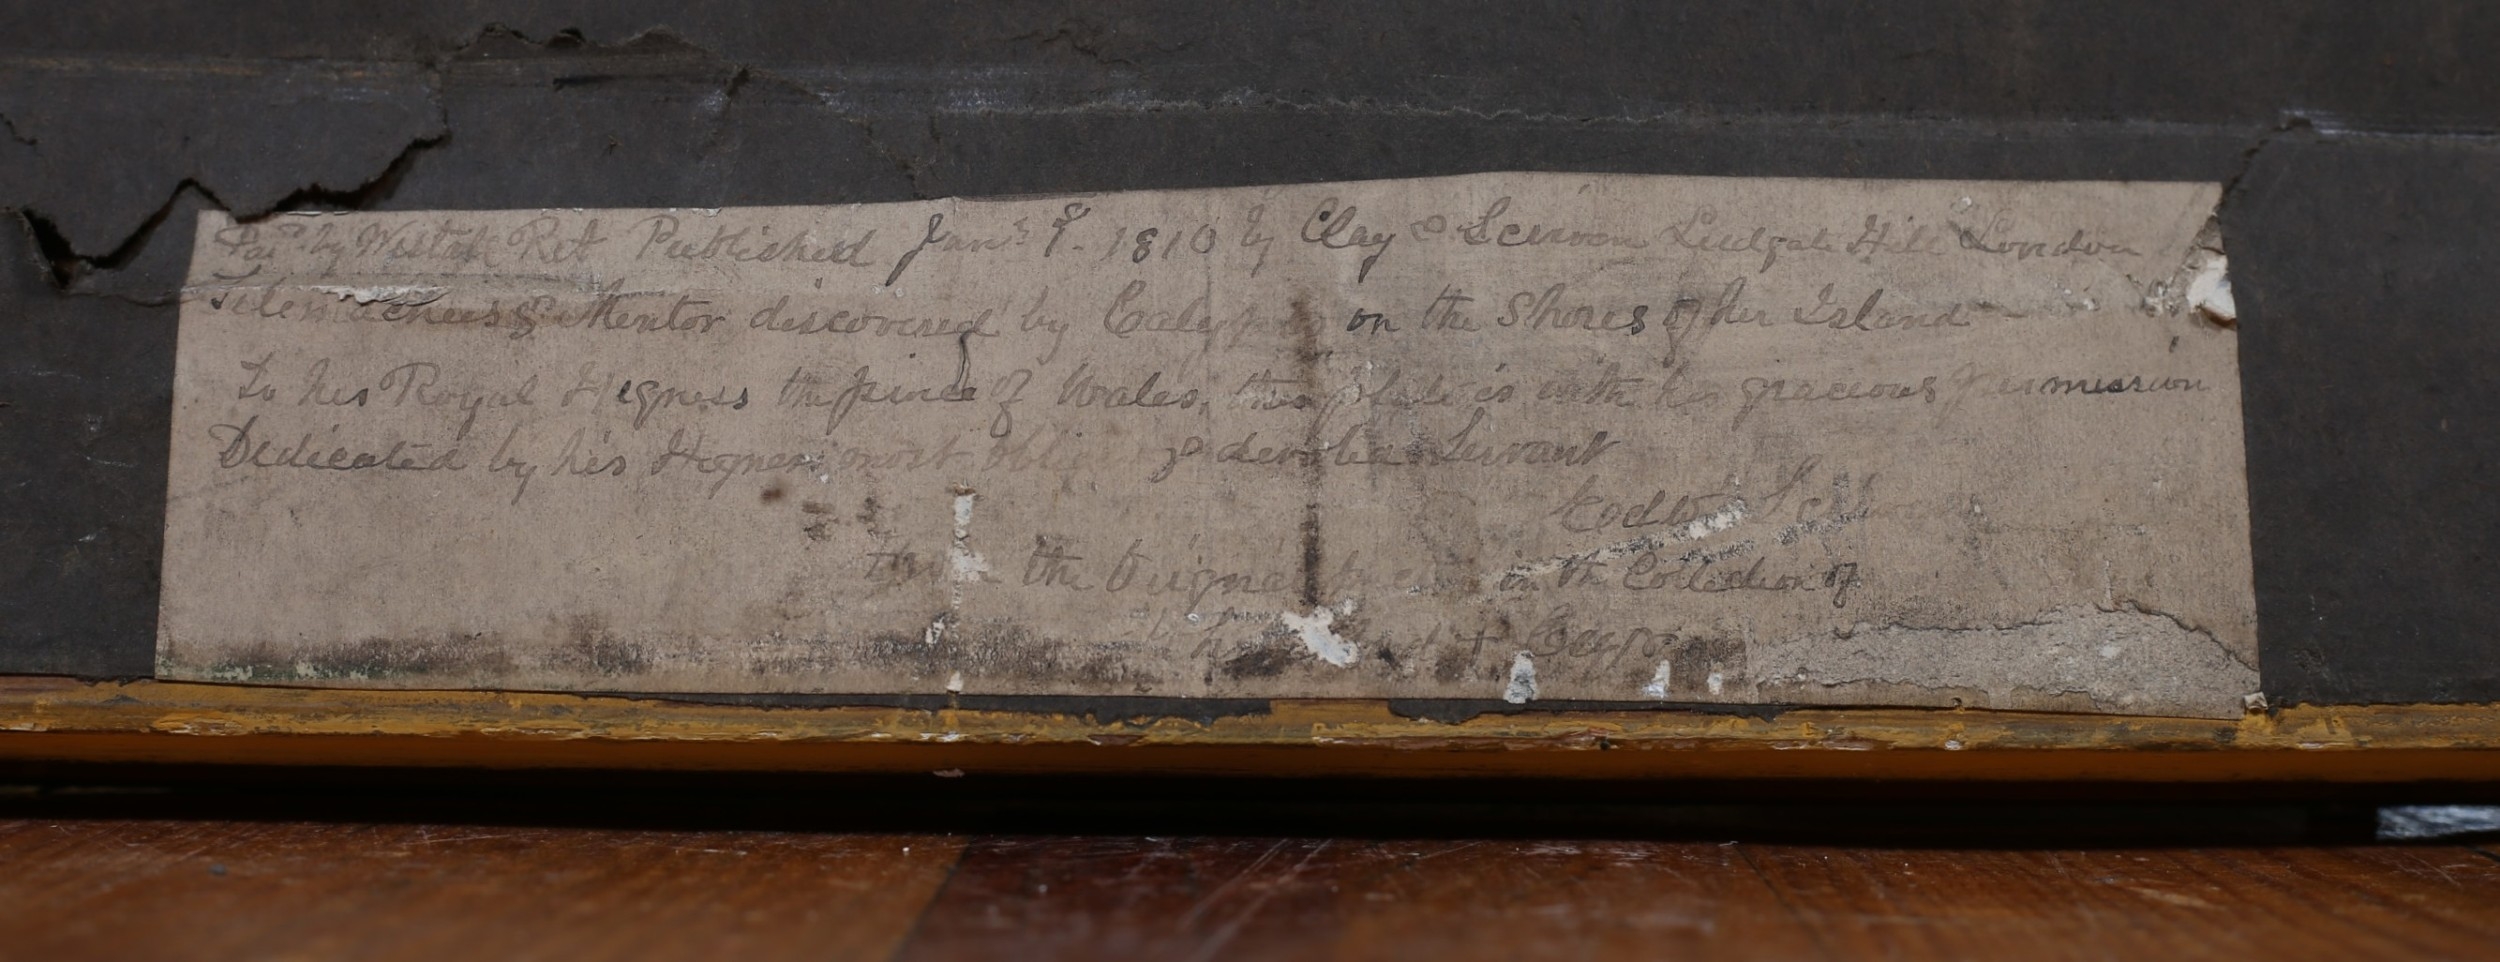 Pai.d by Westall Ret Published Jan.s 9. 1810 by Clay & Scriven Ludgate Hill London
Telemachus & Mentor discovered by Calypso on the Shores of her Island
To his Royal Higness the prince of Wales, this plate is with his gracious permission
Dedicated by his Hogness most oblig & devoted Servant
Edwd Scriven
the Original in the Collection of